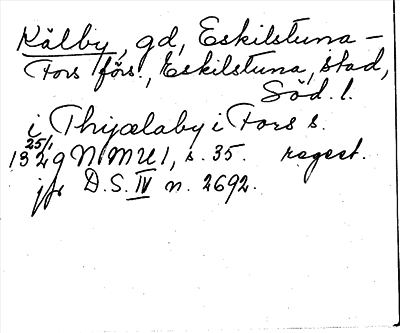 Kälby, gd, Eskilstuna-
Fors förs., Eskilstuna, stad,
Söd. l.
i Thijælaby i Fors s.
1329 25/1 NMU 1, s. 35. regest.
jfr D.S. IV n. 2692.